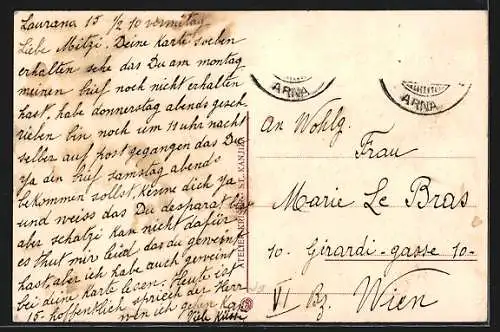 Laurana 15 1/2 10 vormittag
Liebe Mitzi. Deine Karte soeben
erhalten sehe das Du am montag
meinen brief noch nicht erhalten
hast, habe donnerstag abends gesch
rieben bin noch um 11 uhr nacht
selber auf post gegangen das Du
ja den brief samstag abends
bekommen sollst, kenne dich ja
und weiss das Du desparat bis
aber schatzi kan nicht dafür
es thut mir leid das du geweint
hast, aber ich habe auch geweint
bei deine Karte lesen. Heute ist
15- hoffentlich spricht der Herr
wen ich gehen kan
Viele Küsse
ARNA
ARNA
An Wohlg.
Frau
Marie Le Bras
10- Girardi-gasse 10-
VI Bz. Wien
ATELIER ST. KANJI